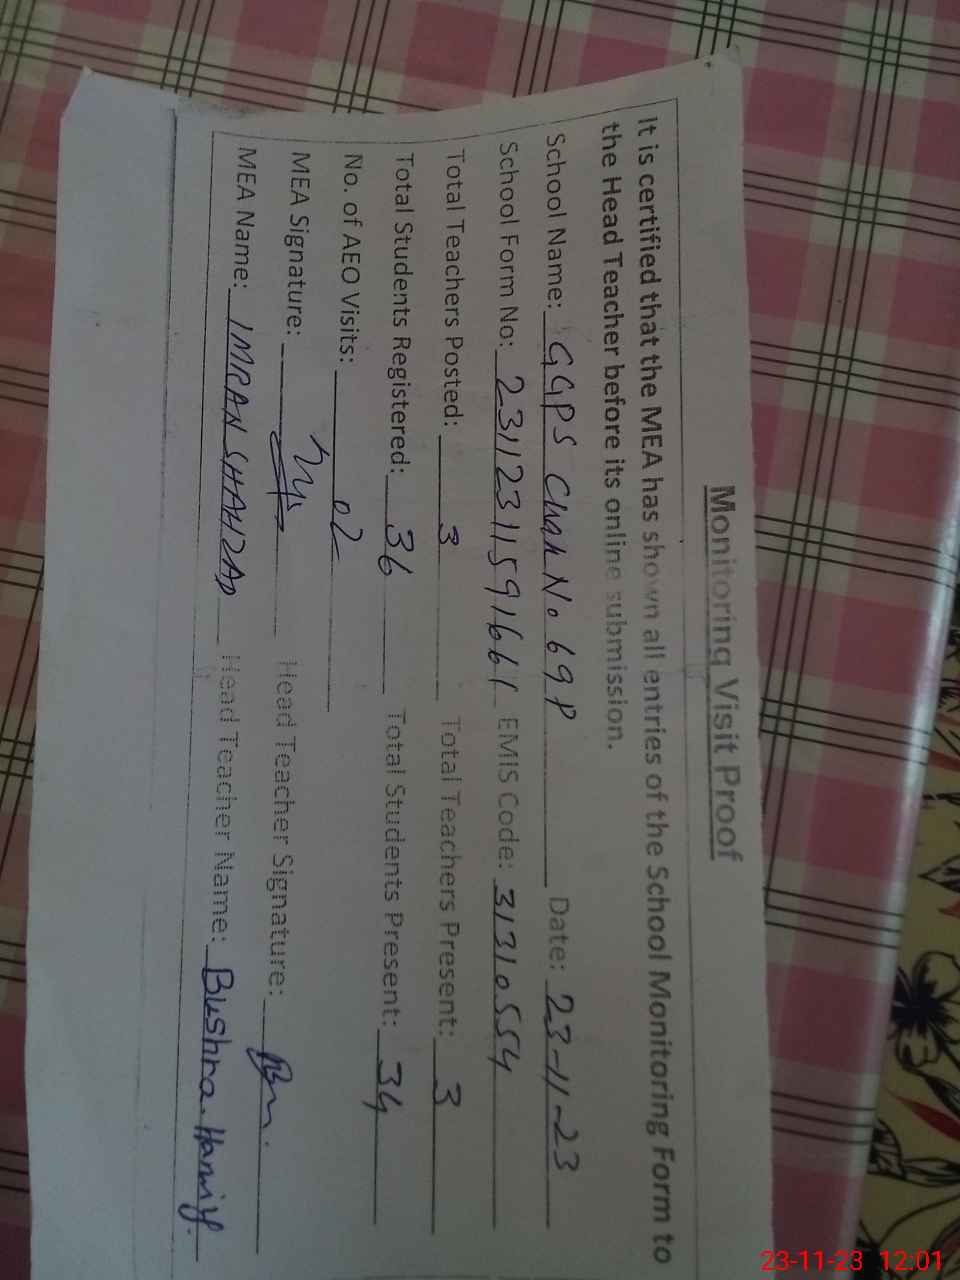 Monitoring Visit Proof
It is certified that the MEA has shown all entries of the School Monitoring Form to
the Head Teacher before its online submission.
School Name: GGPS Chak No 69 P Date: 23-11-23
School Form No: 23112311591661 EMIS Code: 31310554
Total Teachers Posted: 3 Total Teachers Present: 3
Total Students Registered: 36 Total Students Present: 34
No. of AEO Visits: 02
MEA Signature: Head Teacher Signature:
MEA Name: IMRAN SHAHZAD Head Teacher Name: Bushra. Hanif.
23-11-23 12:01